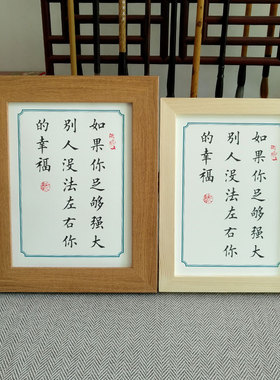 如果你足够强大
别人没法左右你
的幸福
如果你足够强大
别人没法左右你
的幸福